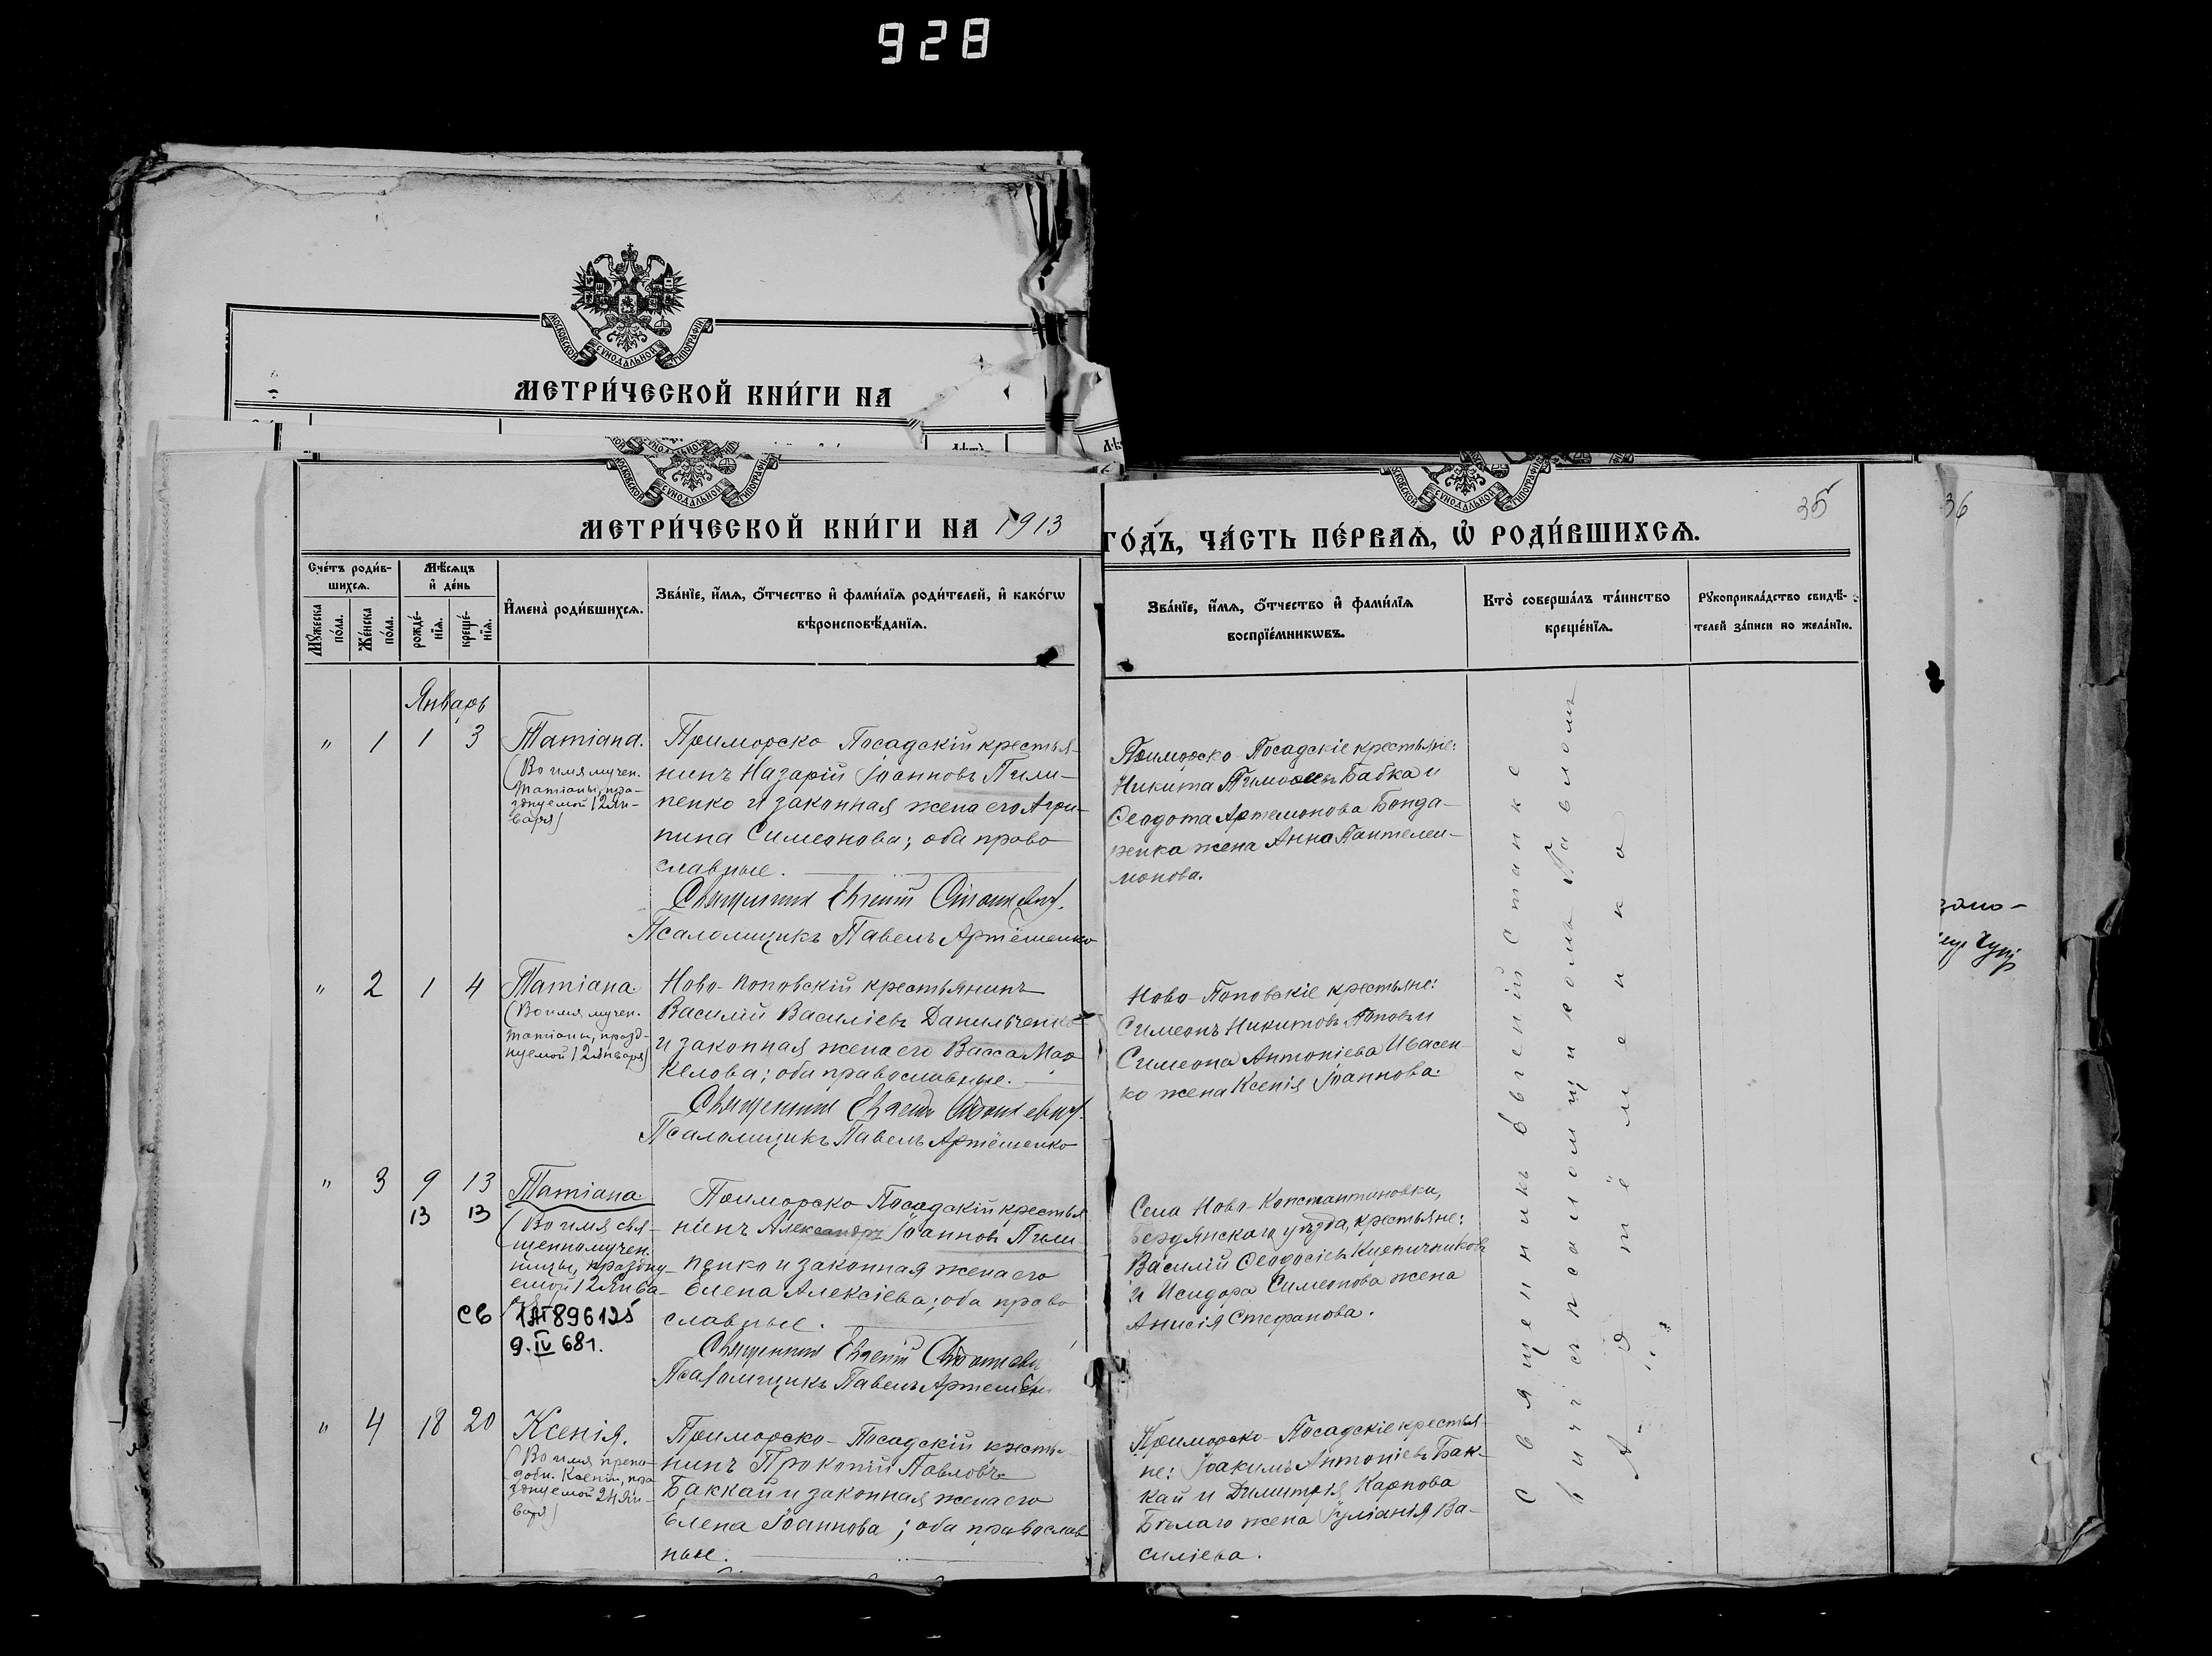 928
МОСКОВСКОЙ СѴНОДАЛЬНОЙ ТИПОГРАФІИ
МЕТРИ́ЧЕСКОЙ КНИ́ГИ НА
МЕТРИ́ЧЕСКОЙ КНИ́ГИ НА 1913
ГО́ДЪ, ЧА́СТЬ ПЕ́РВАѦ, Ѡ҆ РОДИ́ВШИХСѦ.
35
36
Сче́тъ роди́в-
шихсѧ.
Мꙋ́жеска
по́ла.
Же́нска
по́ла.
Мѣ́сѧцъ
и҆ де́нь
рожде́-
нїѧ.
креще́-
нїѧ.
И҆мена̀ роди́вшихсѧ.
Зва́нїе, и҆́мѧ, ѻ҆́тчество и҆ фами́лїѧ роди́телей, и҆ како́гѡ
вѣроисповѣ́данїѧ.
Зва́нїе, и҆́мѧ, ѻ҆́тчество и҆ фами́лїѧ
воспрїе́мникѡвъ.
Кто̀ соверша́лъ та́инство
креще́нїѧ.
Рꙋкоприкла́дство свидѣ́-
телей за́писи по жела́нїю.
Январь
" 1 1 3
Татіана.
(Во имя мучен.
Татіаны, пра-
зднуемой 12 Ян-
варя)
Приморско Посадскій крестья-
нинъ Назарій Іоанновъ Пили-
пенко и законная жена его Агри-
пина Симеонова; оба право
славные.
Священникъ Евгеній Станкевич.
Псаломщикъ Павелъ Артёменко
Приморско-Посадскіе крестьяне:
Никита Бабка и
Ѳеодота Артемонова Бонда-
ренка жена Анна Пантелеи-
монова.
" 2 1 4
Татіана
(Во имя мучен.
Татіаны, празд-
нуемой 12 января)
Ново-Поповскій крестьянинъ
Василій Василіевъ Данильченко
и законная жена его Васса Мар
келова; оба православные.
Священникъ Евгеній Станкевич.
Псаломщикъ Павелъ Артёменко
Ново-Поповскіе крестьяне:
Симеонъ Никитовъ Поповъ и
Симеона Антоніева Ивасен-
ко жена Ксенія Іоаннова.
" 3 9 13
13 13
Татіана
(Во имя свя-
щенномучен.
ницы, праздну-
емой 12 Янва-
ря)
св 1АП 896125
9.IV 68г.
Приморско Посадскій крестья
нинъ Александръ Іоанновъ Пили
пенко и законная жена его
Елена Алексіева; оба право
славные.
Священникъ Евгеній Станкевич
Псаломщикъ Павелъ Артемен
Села Ново-Константиновки,
Бердянскаго уѣзда, крестьяне:
Василій Ѳеодосіевъ Кирпичниковъ
и Исидора Симеонова жена
Анисія Стефанова.
" 4 18 20
Ксенія.
(Во имя препо-
добн. Ксеніи, пра
зднуемой 24 Ян-
варя)
Приморско-Посадскій крестья-
нинъ Прокопій Павловъ
Баккай и законная жена его
Елена Іоаннова; оба православ
ные.
Приморско-Посадскіе крестья-
не: Іоакимъ Антоніевъ Бак-
кай и Димитрія Карпова
Бѣлаго жена Іуліанія Ва-
силіева.
Священникъ Евгеній Станке
вичъ съ псаломщикомъ Павломъ
Артёменко